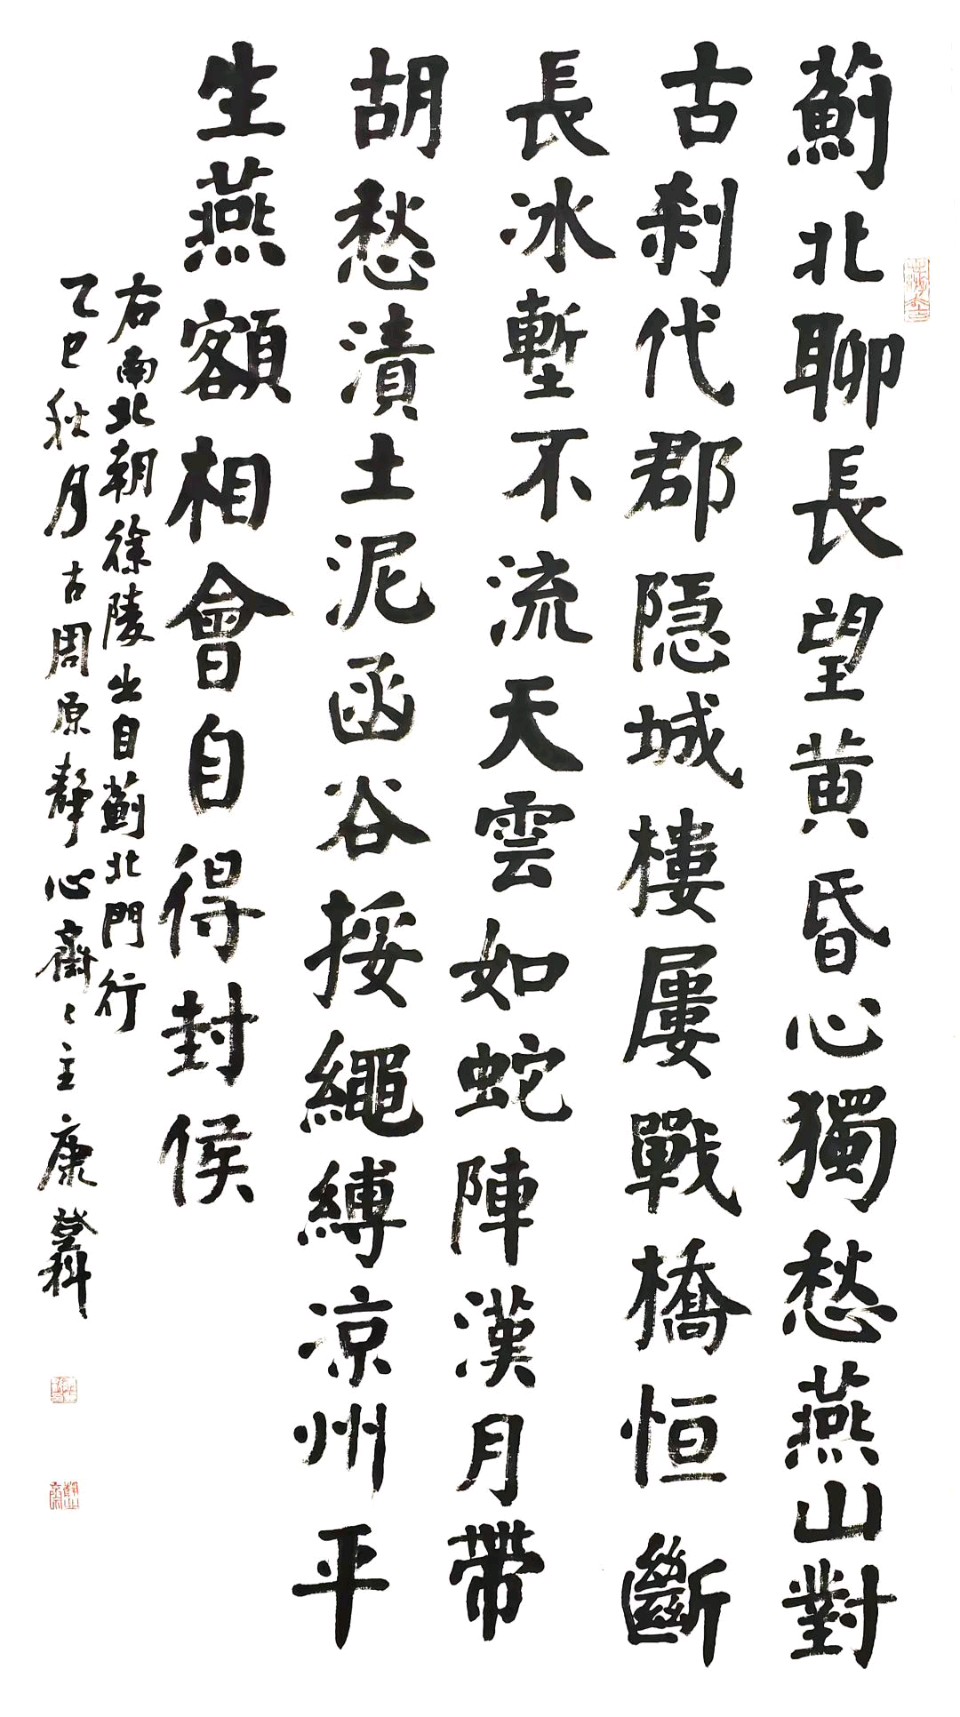 薊北聊長望黄昏心獨愁燕山對
古刹代郡隱城樓屢戰橋恒斷
長冰塹不流天雲如蛇陣漢月帶
胡愁漬土泥函谷挼繩縛凉州平
生燕額相會自得封侯
右南北朝徐陵出自薊北門行
乙巳秋月古周原靜心齋〻主康登科